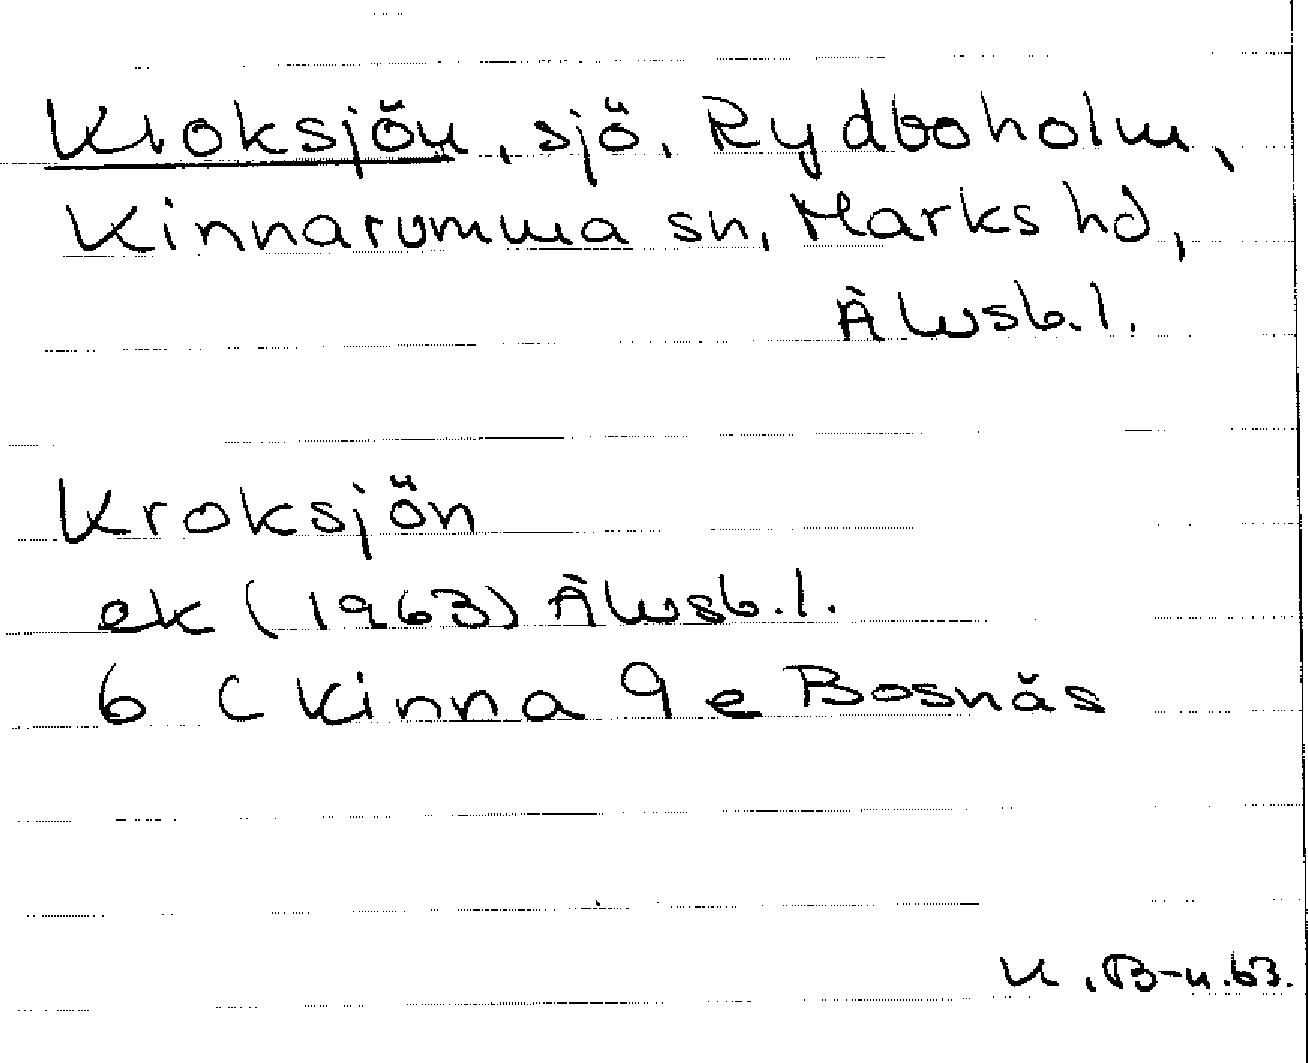 Kroksjön, sjö. Rydboholm,
Kinnarumma sn, Marks hd,
Älvsb.l.
Kroksjön
ek (1963) Älvsb.l.
6 C Kinna 9 e Bosnäs
K.B-n.63.